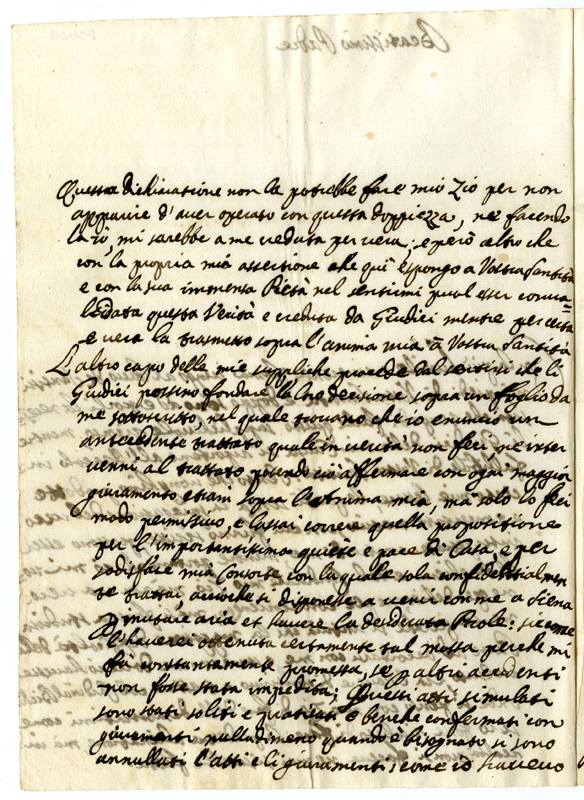 Beatissimo Padre
Questa dichiaratione non la potrebbe fare mio Zio per non
apparire d'aver operato con questa doppiezza, ne facendo
la io, mi sarebbe a me creduta per vera; e però altro che
con la propria mia assertione che quì espongo a Vostra Santità
e con la sua immensa Pietà nel sentirmi, puol esser conva=
lidata questa Verità e creduta da Giudici mentre per certa
e vera la trasmetto sopra l'anima mia à Vostra Santità
L'altro capo delle mie suppliche procede dal sentirsi che li
Giudici possino fondare la loro decisione sopra un foglio da
me sottoscritto, nel quale trovano che io enuncio un
antecedente trattato quale in verità non feci, ne inter
venni al trattato potendo ciò affermare con ogni maggior
giuramento etiam sopra l'Anima mia, mà solo lo feci
modo permissivo, e lassai correre quella propositione
per l'importantissima quiete e pace di Casa, e per
sodisfare mia Consorte con la quale sola confidentialmen
te trattai, accioche si disponesse a venir con me a Siena
p mutare aria et havere la desiderata Prole: siccome
l'haverei ottenuta certamente tal mossa perche mi
fù constantemente promessa, se p altri accidenti
non fosse stata impedita; Questi atti simulati
sono stati soliti e praticati e benche confermati con
giuramenti nulladimeno quando è bisognato si sono
annullati l'atti e li giuramenti; come io havevo